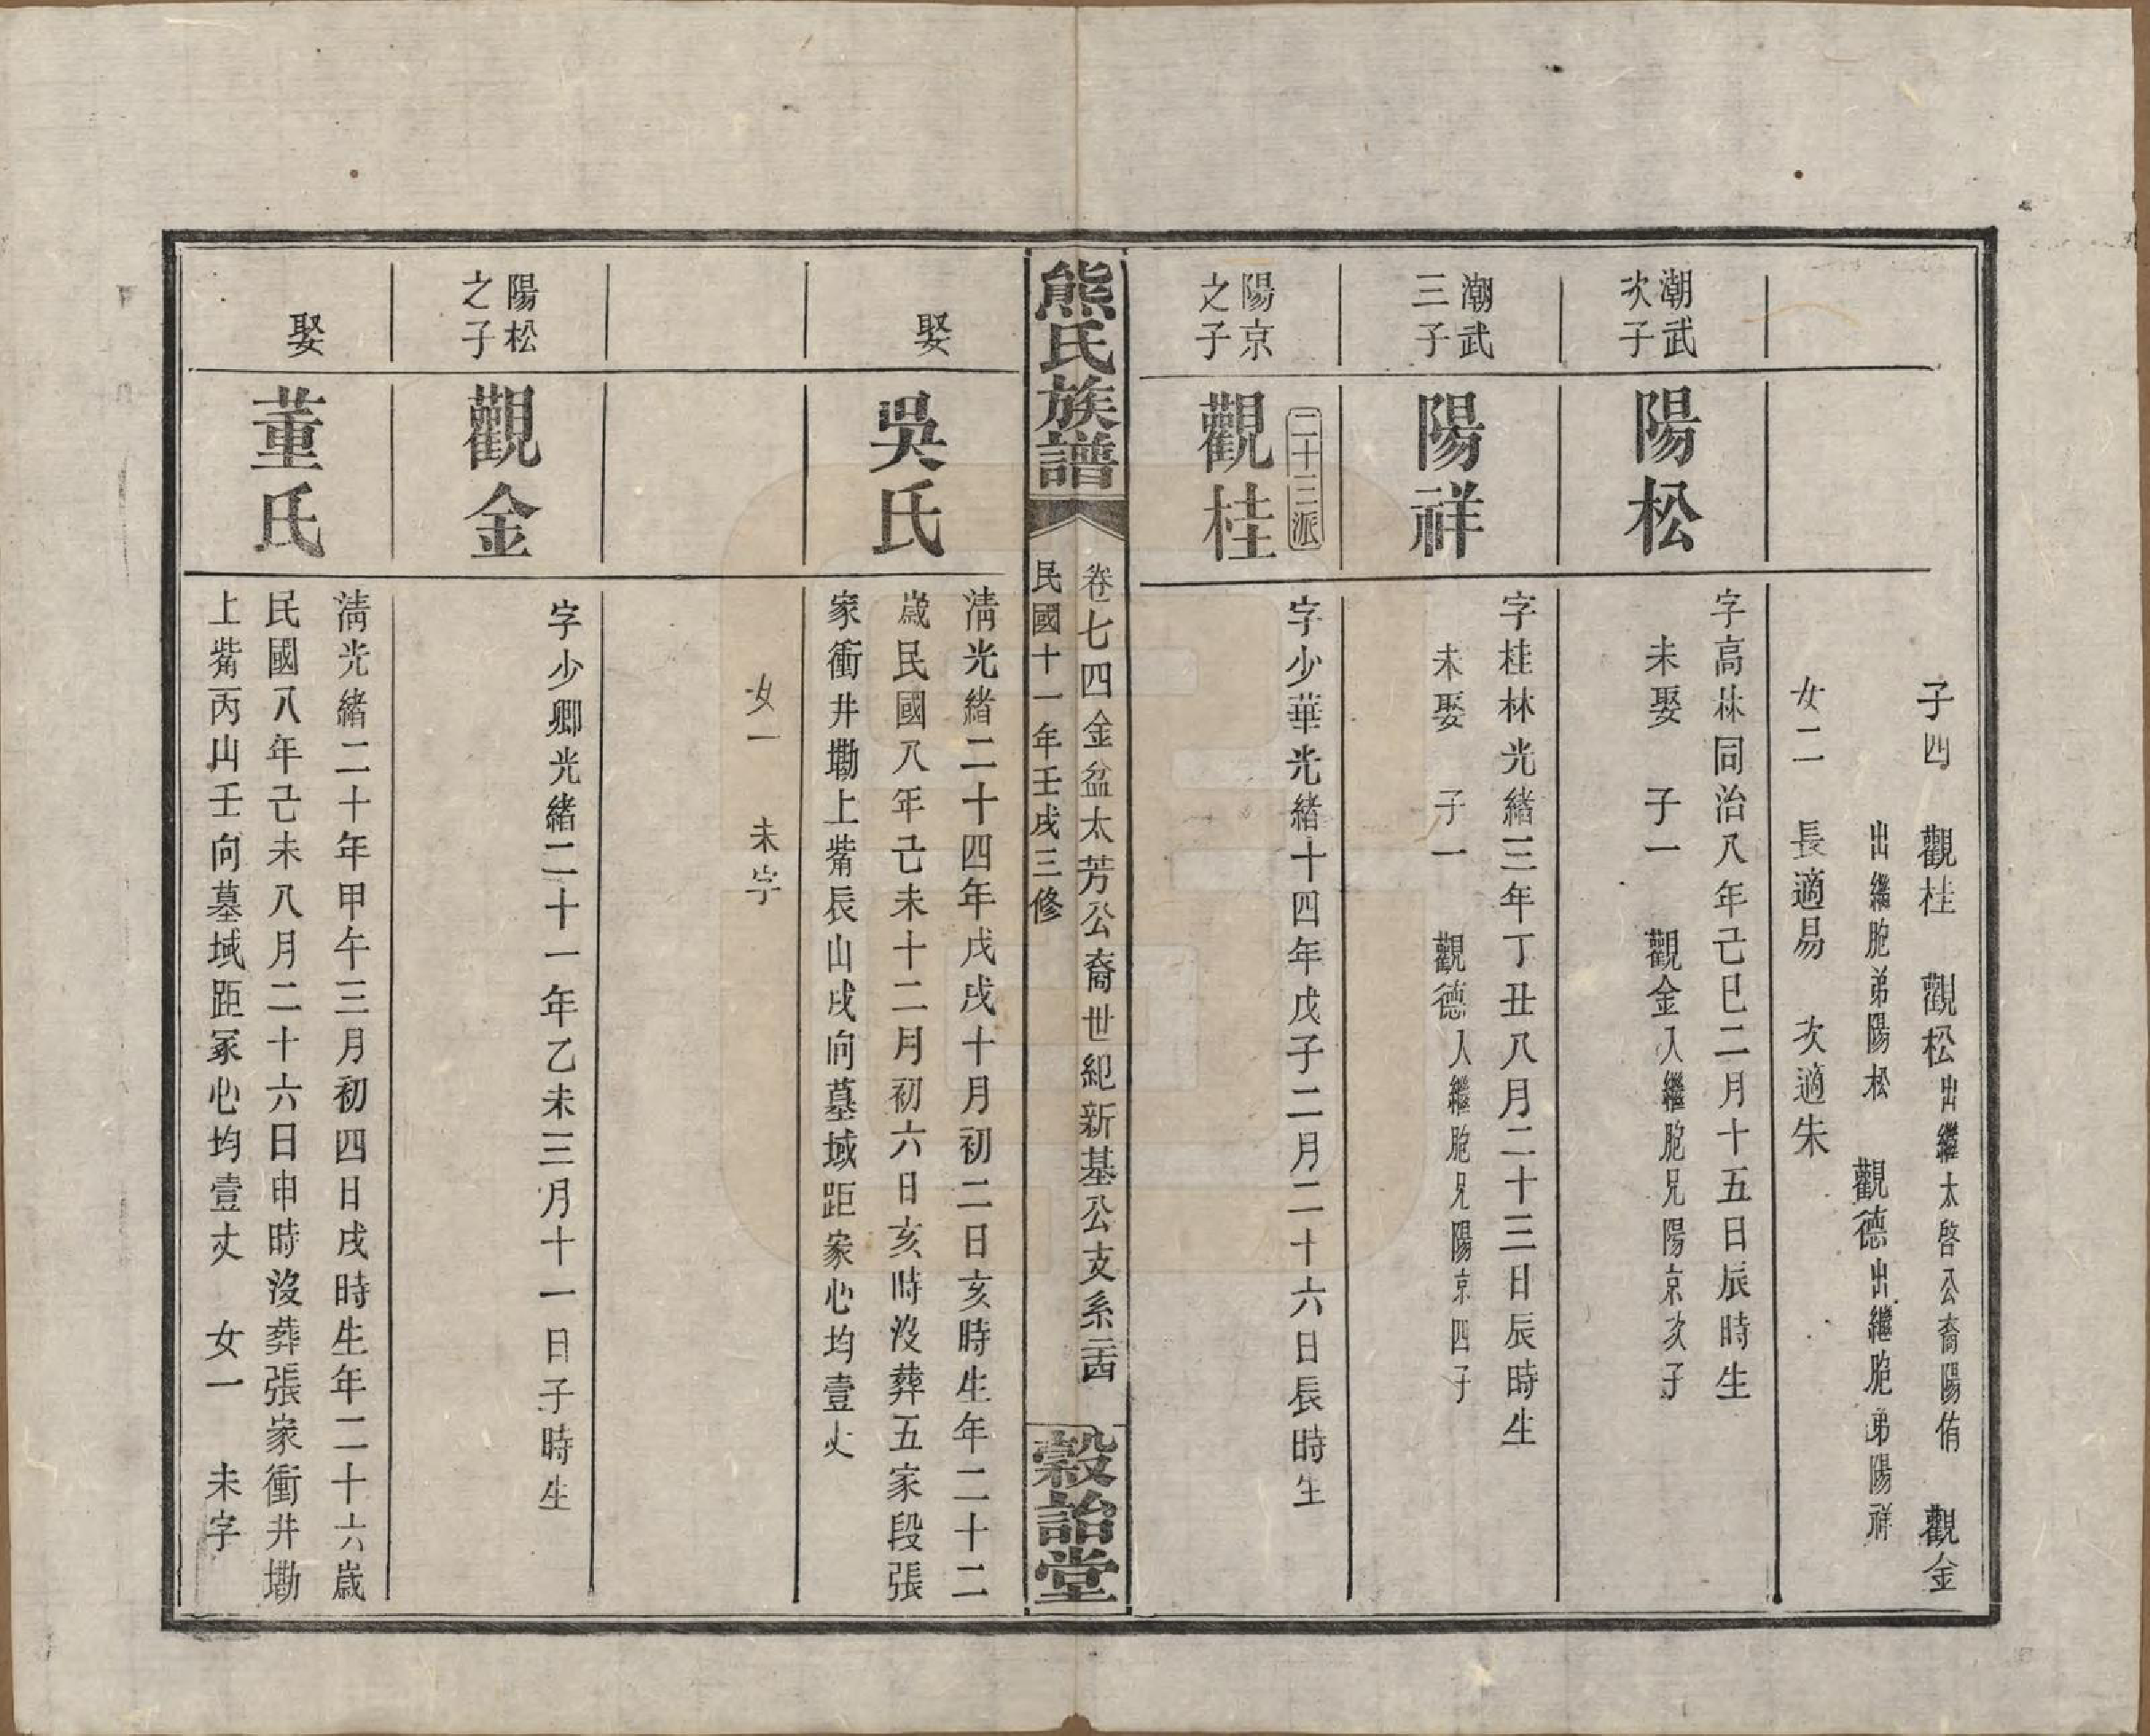 子四　觀桂　觀松出繼太啓公裔陽侑　觀金
出繼胞弟陽松　觀德出繼胞弟陽祥
女二　長適易　次適朱
潮武
次子
陽松
字高林同治八年己巳二月十五日辰時生
未娶　子一　觀金入繼胞兄陽京次子
潮武
三子
陽祥
字桂林光緒三年丁丑八月二十三日辰時生
未娶　子一　觀德入繼胞兄陽京四子
二十三派
陽京
之子
觀桂
字少華光緒十四年戊子二月二十六日長時生
熊氏族譜
卷七四金盆太芳公裔世紀新基公支系二十四
民國十一年壬戌三修
穀詒堂
娶
吳氏
淸光緒二十四年戊戌十月初二日亥時生年二十二
歲民國八年己未十二月初六日亥時沒葬五家段張
家衝井墈上觜辰山戌向墓域距冢心均壹丈
女一　未字
陽松
之子
觀金
字少卿光緒二十一年乙未三月十一日子時生
娶
董氏
淸光緒二十年甲午三月初四日戌時生年二十六歲
民國八年己未八月二十六日申時沒葬張家衝井墈
上觜丙山壬向墓域距冢心均壹丈　女一　未字